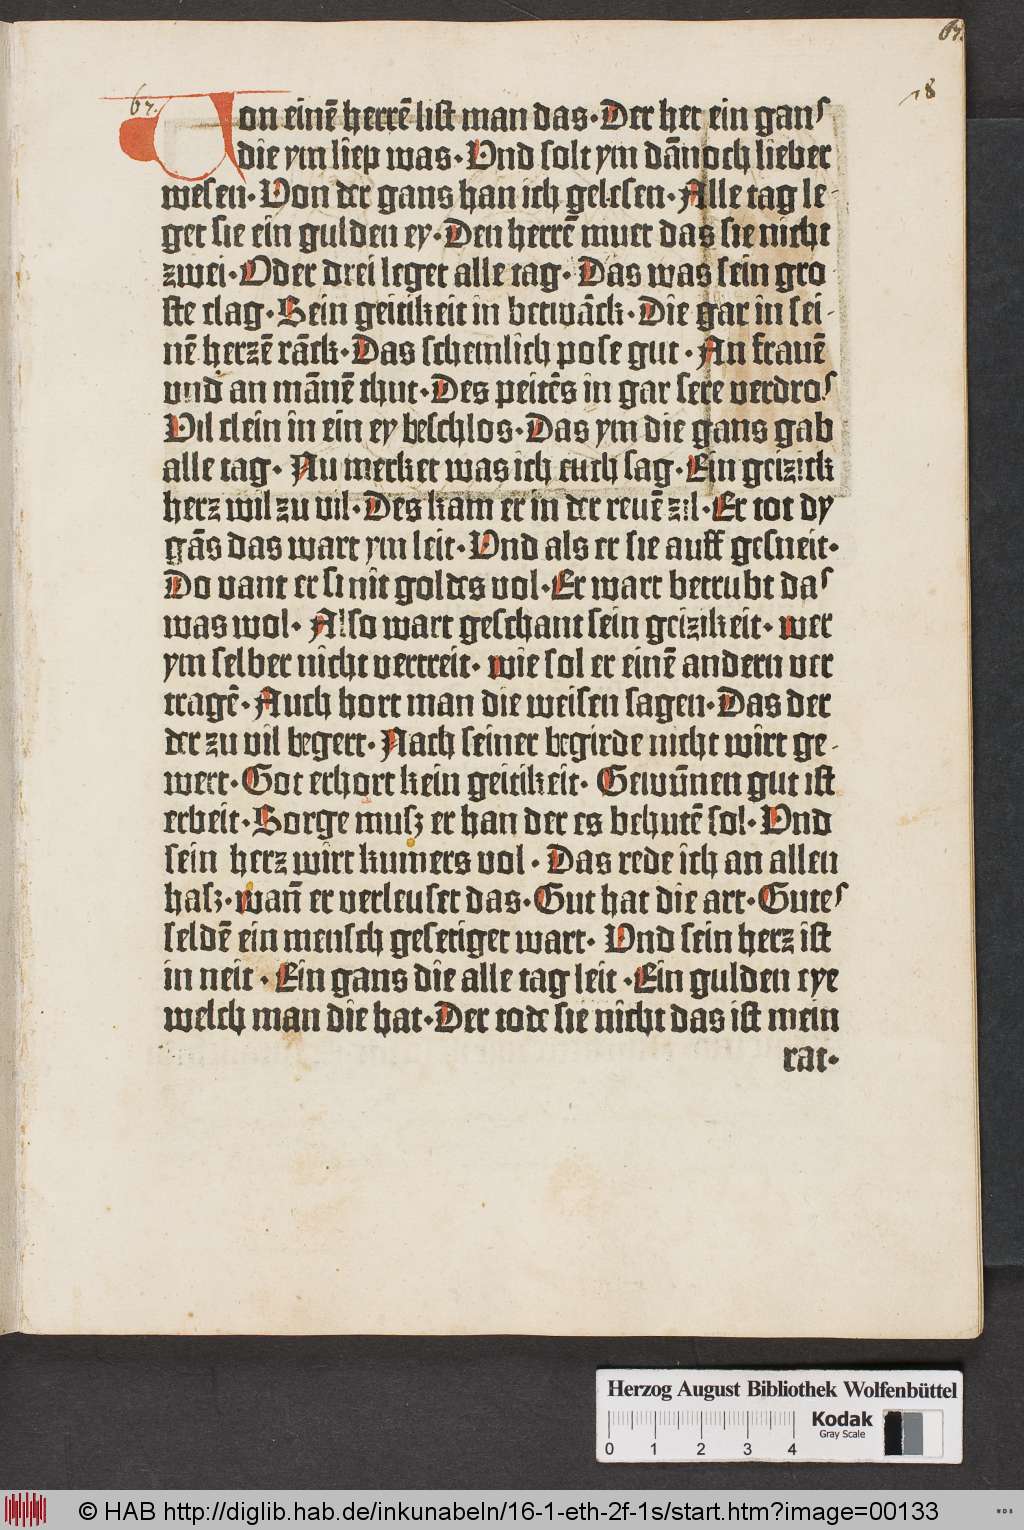 67.
67.
18
Von einē herrē list man das· Der het ein gans
die ym liep was· Vnd solt ym dānoch lieber
wesen· Von der gans han ich gelesen· Alle tag le-
get sie ein gulden ey· Den herrē muet das sie nicht
zwei· Oder drei leget alle tag· Das was sein gro
ste clag· Sein geitikeit in betwāck· Die gar in sei-
nē herzē rāck· Das scheinlich pose gut· An frauē
vnd an mānē thut· Des peitēs in gar sere verdros
Vil clein in ein ey beschlos· Das ym die gans gab
alle tag· Nu mercket was ich euch sag· Ein geizick
herz wil zu vil· Des kam er in der reuē zil· Er tot dy
gās das wart ym leit· Vnd als er sie auff gesneit·
Do vant er si nit goldes vol· Er wart betrubt das
was wol· Also wart geschant sein geizikeit· wer
ym selber nicht vertreit· wie sol er einē andern ver
tragē· Auch hort man die weisen sagen· Das der
der zu vil begert· Nach seiner begirde nicht wirt ge-
wert· Got erhort kein geitikeit· Gewūnen gut ist
erbeit· Sorge musz er han der es behutē sol· Vnd
sein herz wirt kumers vol· Das rede ich an allen
hasz· wañ er verleuset das· Gut hat die art· Gutes
seldē ein mensch gesetiget wart· Vnd sein herz ist
in neit· Ein gans die alle tag leit· Ein gulden eye
welch man die hat· Der tode sie nicht das ist mein
rat·
Herzog August Bibliothek Wolfenbüttel
0 1 2 3 4
Kodak
Gray Scale
© HAB http://diglib.hab.de/inkunabeln/16-1-eth-2f-1s/start.htm?image=00133